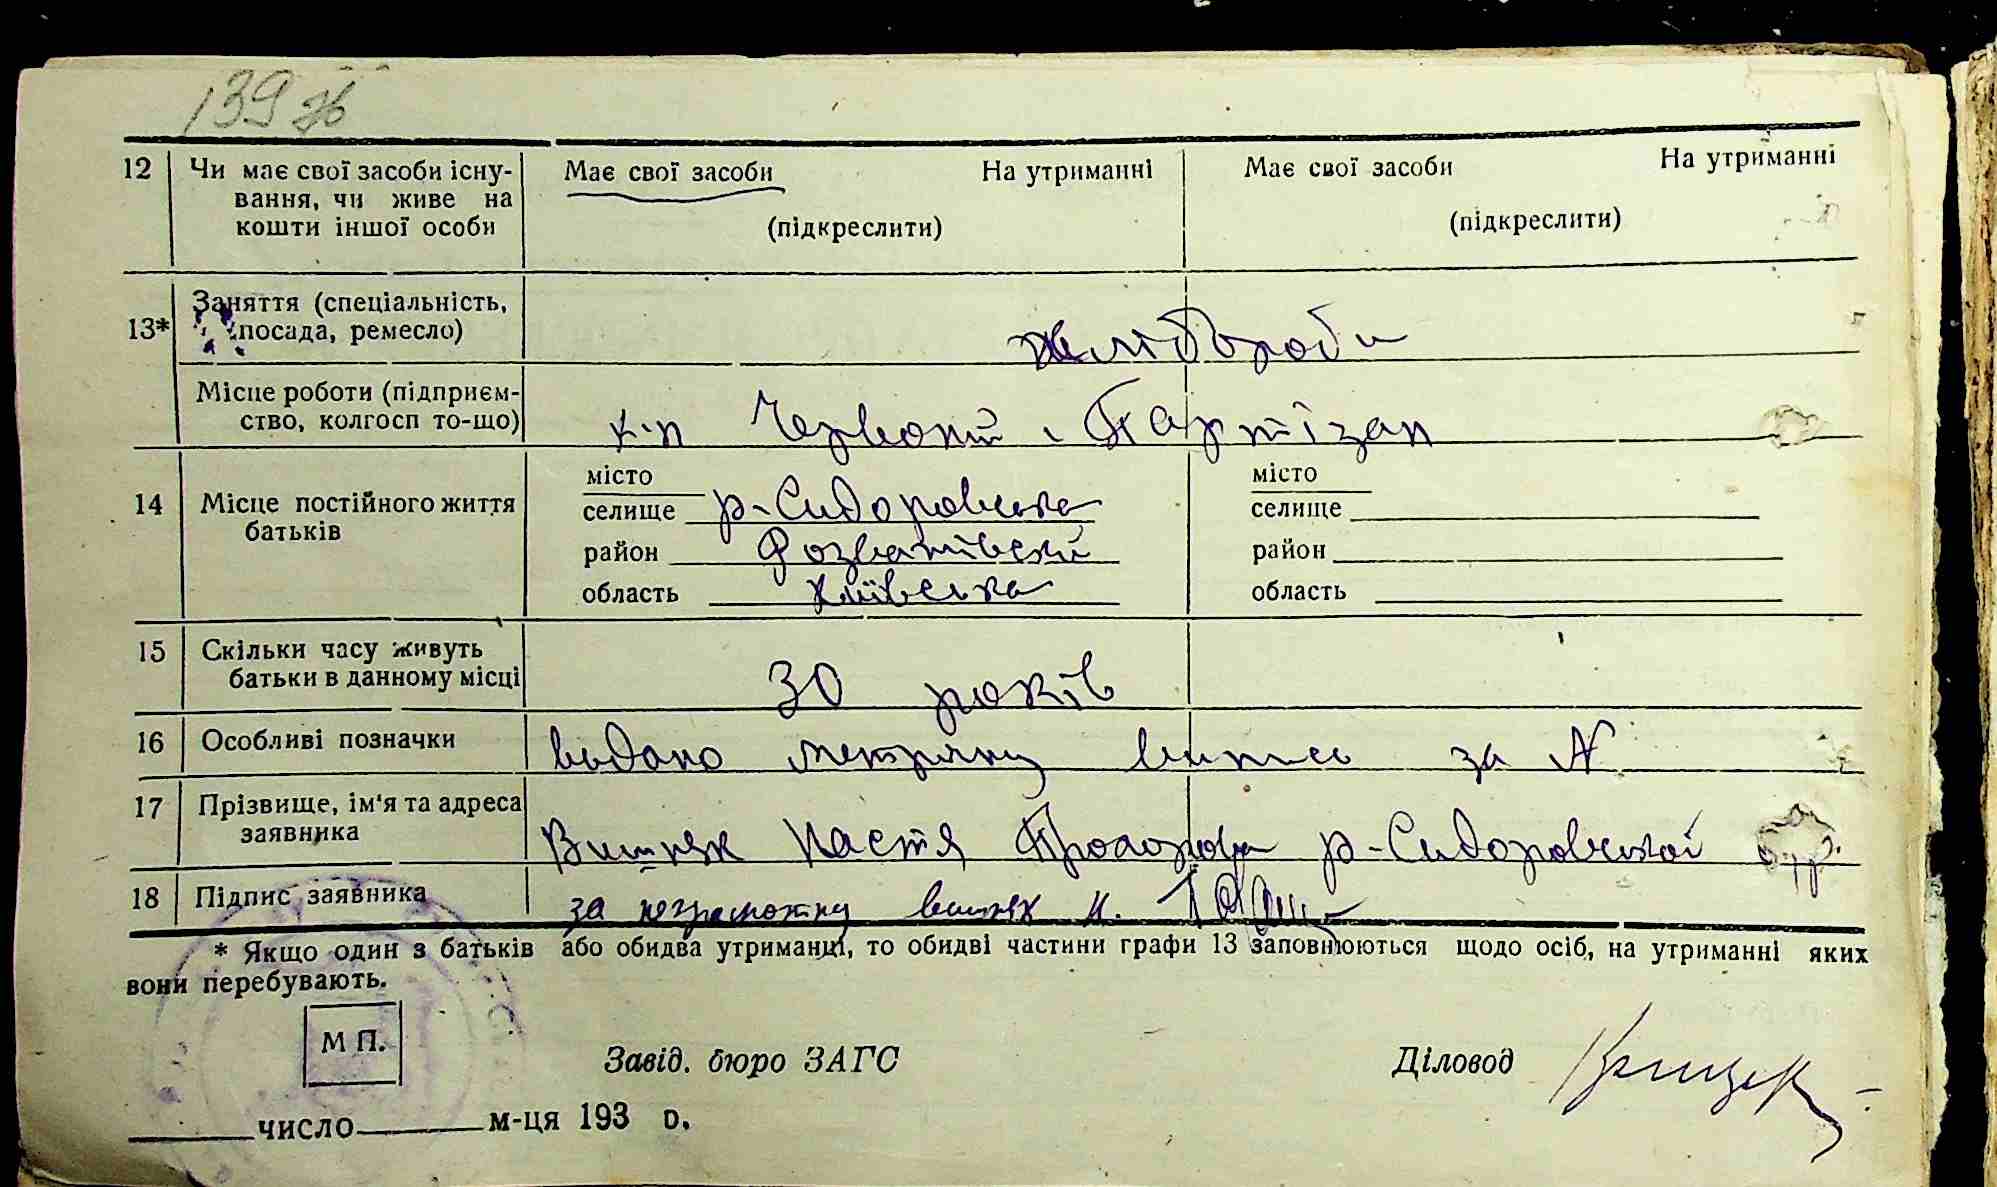 139 зв
12 Чи має свої засоби існу- Має свої засоби На утриманні Має свої засоби На утриманні
вання, чи живе на
кошти іншої особи (підкреслити) (підкреслити)
Заняття (спеціальність,
13* посада, ремесло) хліборобы
Місце роботи (підприєм-
ство, колгосп то-що) к-п Червоний Партізан
місто місто
14 Місце постійного життя селище р-Сидоровська селище
батьків район район
область Київська область
15 Скільки часу живуть
батьки в данному місці 30 років
16 Особливі позначки видано метричну випись за N
17 Прізвище, ім'я та адреса
заявника Настя р-Сидоровської
18 Підпис заявника за неграмотну
* Якщо один з батьків або обидва утриманці, то обидві частини графи 13 заповнюються щодо осіб, на утриманні яких
вони перебувають.
М П.
Завід. бюро ЗАГС Діловод
число м-ця 193 р.